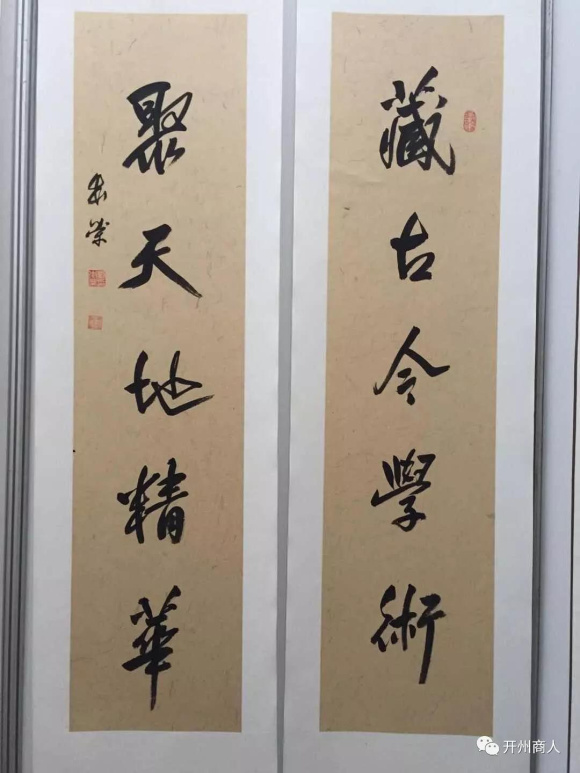 藏古今學術
聚天地精華
开州商人